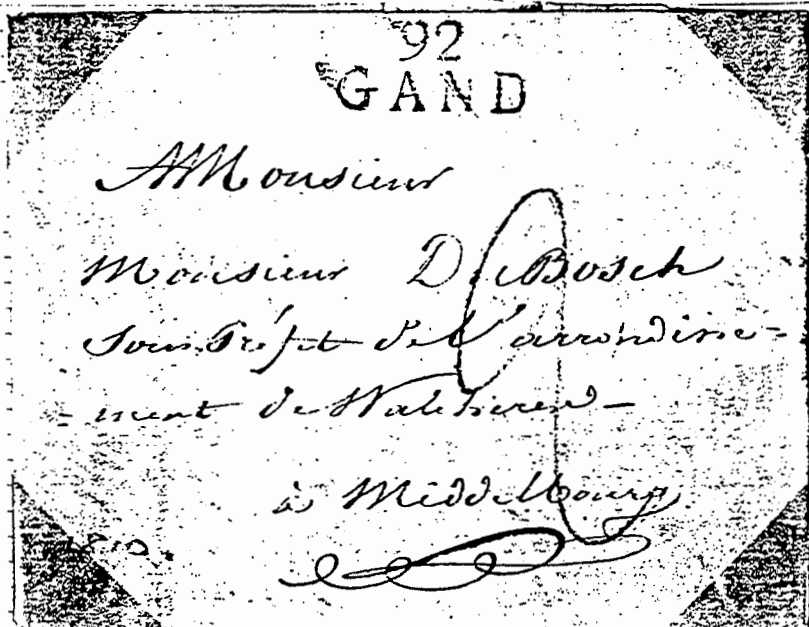 92
GAND
A Monsieur
Monsieur De Bosch
Sous Préfet de l'arrondisse=
=ment de Walcheren -
à Middelbourg